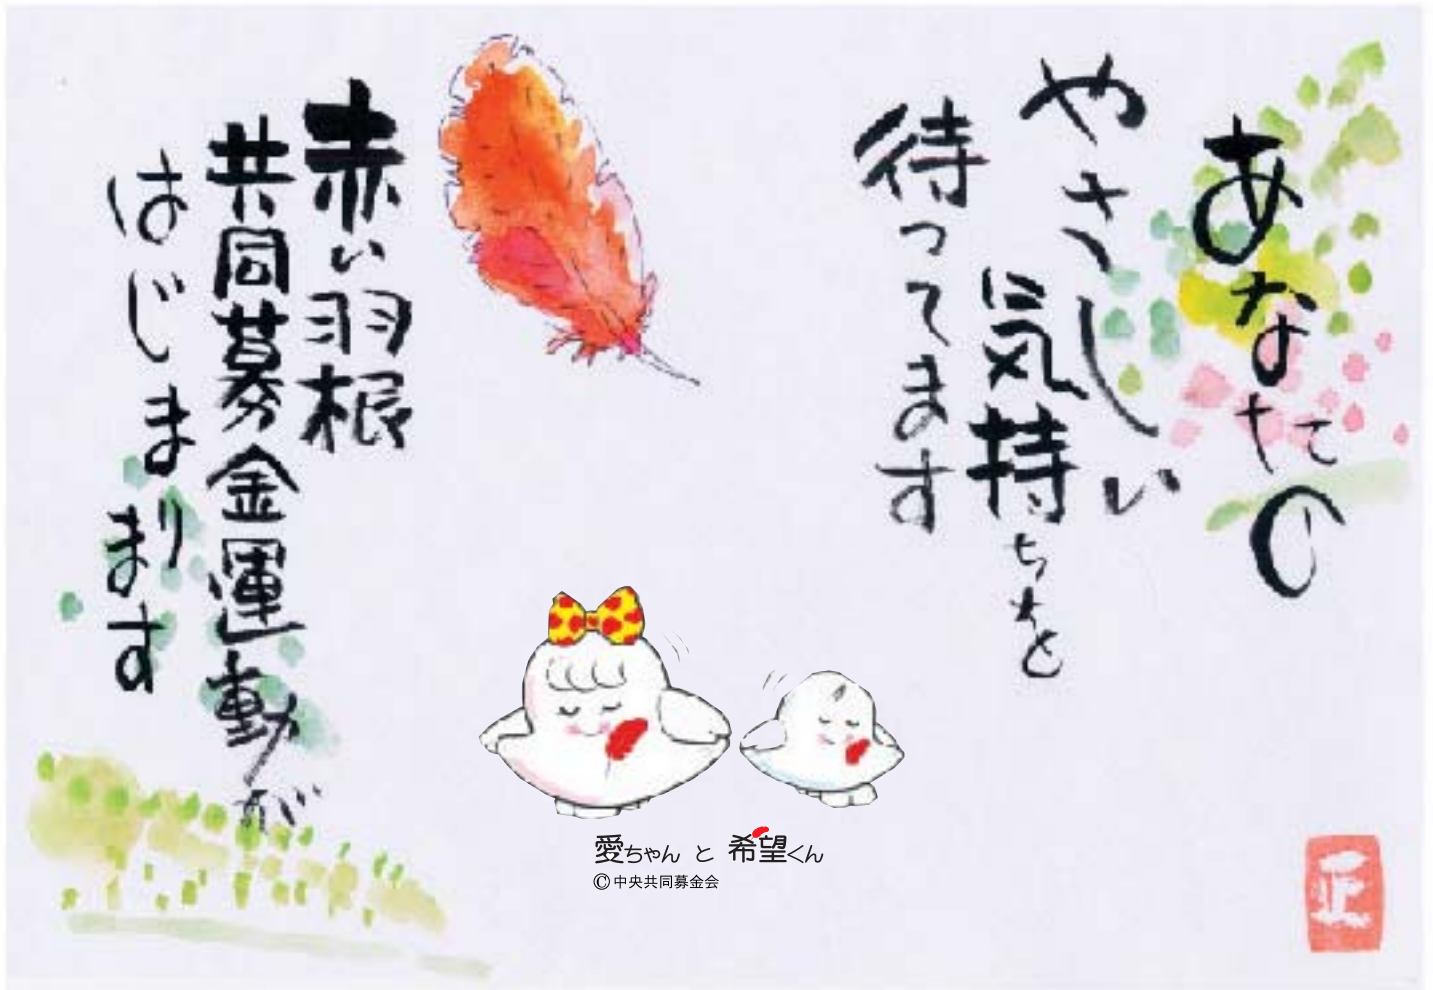 あなたの
やさしい
気持ちを
待ってます
赤い羽根
共同募金運動が
はじまります
愛ちゃん と 希望くん
©中央共同募金会
正